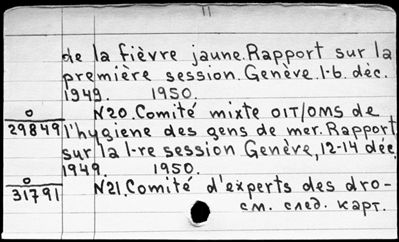 11
de la fièvre jaune. Rapport sur la
première session. Genève. 1-6. déc.
1949. 1950.
0 N20. Comité mixte OIT/OMS de
29849 l'hygiene des gens de mer. Rapport
sur la 1-re session Genève, 12-14 déc.
1949. 1950.
0 N21. Comité d'experts des dro-
31791 см. след. карт.